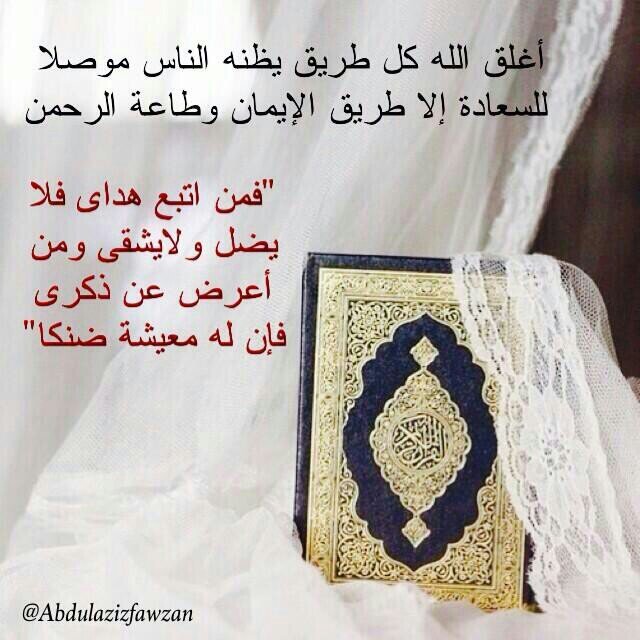 أغلق الله كل طريق يظنه الناس موصلا
للسعادة إلا طريق الإيمان وطاعة الرحمن
"فمن اتبع هداى فلا
يضل ولايشقى ومن
أعرض عن ذكرى
فإن له معيشة ضنكا"
القرآن الكريم
@Abdulazizfawzan